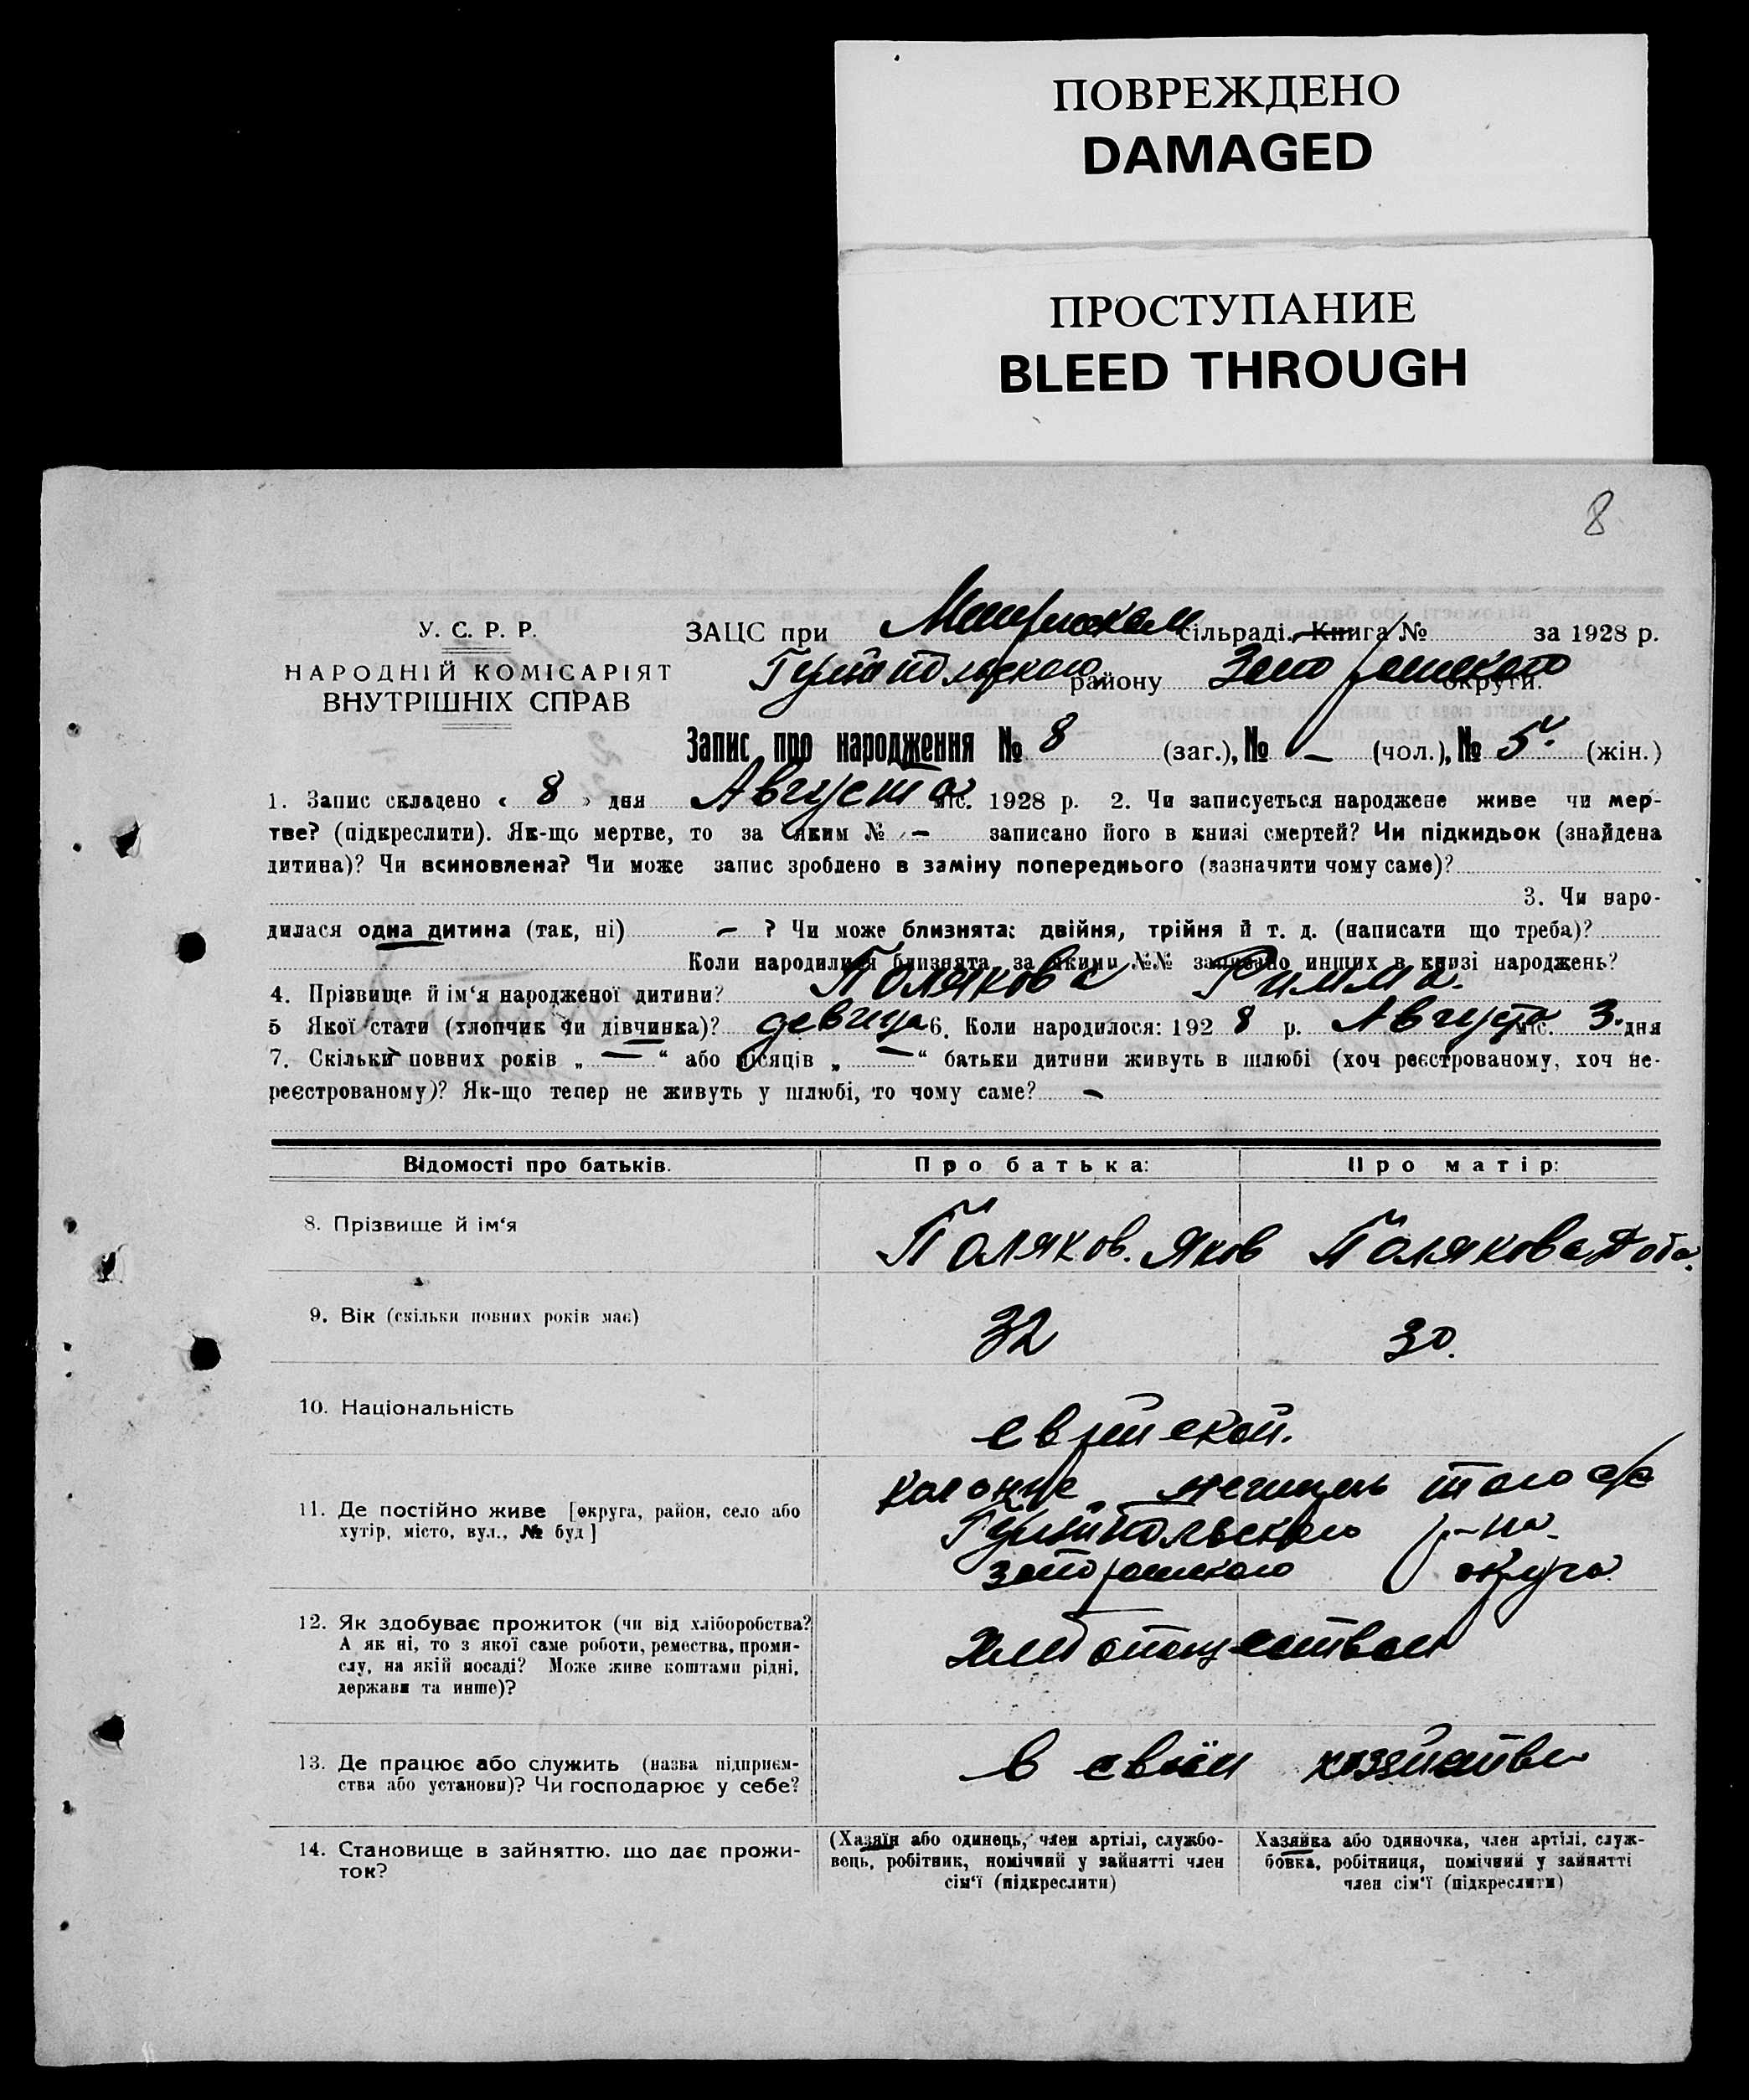 ПОВРЕЖДЕНО
DAMAGED
ПРОСТУПАНИЕ
BLEED THROUGH
8
У. С. Р. Р.
НАРОДНІЙ КОМІСАРІЯТ
ВНУТРІШНІХ СПРАВ
ЗАЦС при сільраді. Книга № за 1928 р.
району округи.
Запис про народження № 8 (заг.), № — (чол.), № 5 (жін.)
1. Запис складено « 8 » дня Августа міс. 1928 р. 2. Чи записується народжене живе чи мер-
тве? (підкреслити). Як-що мертве, то за яким № - записано його в книзі смертей? Чи підкидьок (знайдена
дитина)? Чи всиновлена? Чи може запис зроблено в заміну попереднього (зазначити чому саме)?
3. Чи наро-
дилася одна дитина (так, ні) — ? Чи може близнята: двійня, трійня й т. д. (написати що треба)?
Коли народилися близнята, за якими №№ записано инших в книзі народжень?
4. Прізвище й ім'я народженої дитини? Полякова Римма.
5 Якої стати (хлопчик чи дівчинка)? девица 6. Коли народилося: 192 8 р. Августа міс. 3 дня
7. Скільки повних років „ — “ або місяців „ — “ батьки дитини живуть в шлюбі (хоч реєстрованому, хоч не-
реєстрованому)? Як-що тепер не живуть у шлюбі, то чому саме? -
Відомості про батьків. Про батька: Про матір:
8. Прізвище й ім'я Поляков. Яков Полякова
9. Вік (скільки повних років має) 32 30.
10. Національність еврейской.
11. Де постійно живе [округа, район, село або
хутір, місто, вул., № буд]
колонце того с/с
р-на
округа
12. Як здобуває прожиток (чи від хліборобства?
А як ні, то з якої саме роботи, ремества, проми-
слу, на якій посаді? Може живе коштами рідні,
держави та инше)?
13. Де працює або служить (назва підприєм-
ства або установи)? Чи господарює у себе?
в своём хозяйстве
14. Становище в зайняттю, що дає прожи-
ток?
(Хазяїн або одинець, член артілі, службо-
вець, робітник, помічний у зайнятті член
сім'ї (підкреслити)
Хазяйка або одиночка, член артілі, служ-
бовка, робітниця, помічний у зайнятті
член сім'ї (підкреслити)